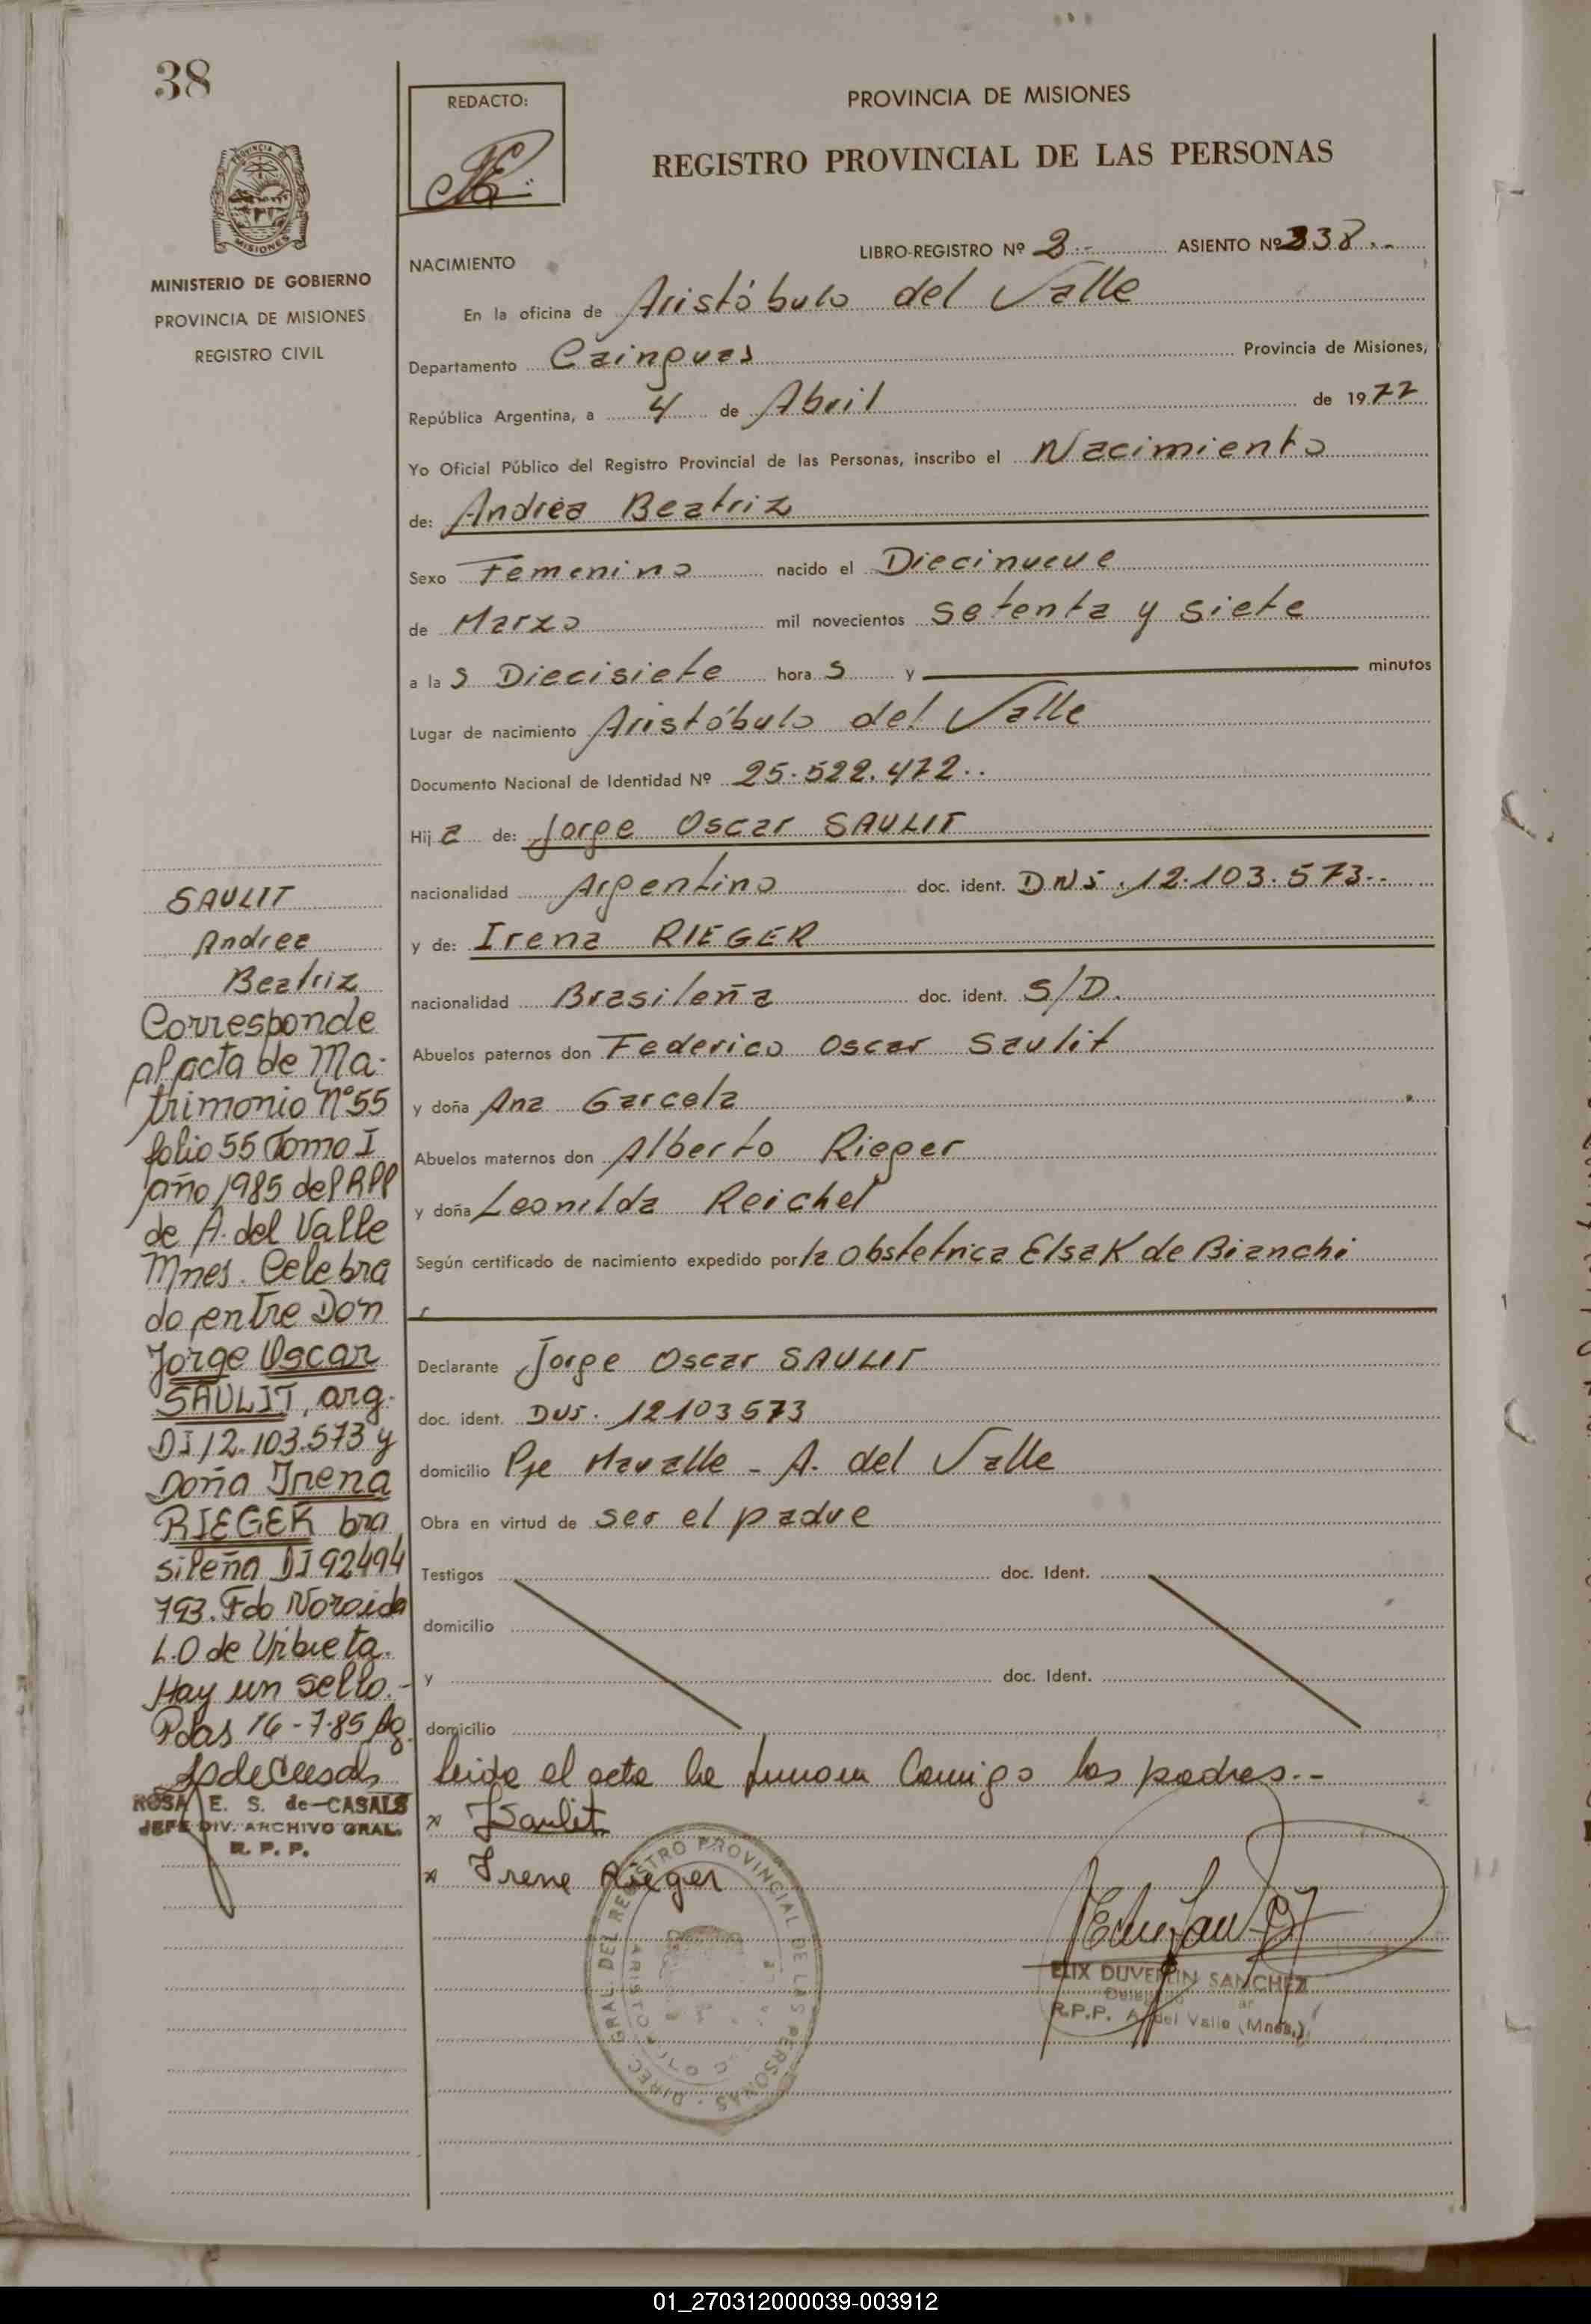 38
REDACTO:
PROVINCIA DE MISIONES
REGISTRO PROVINCIAL DE LAS PERSONAS
PROVINCIA DE
MISIONES
MINISTERIO DE GOBIERNO
PROVINCIA DE MISIONES
REGISTRO CIVIL
LIBRO-REGISTRO Nº 2.- ASIENTO Nº 338..
NACIMIENTO
En la oficina de Aristóbulo del Valle
Departamento Cainguas Provincia de Misiones,
República Argentina, a 4 de Abril de 1977
Yo Oficial Público del Registro Provincial de las Personas, inscribo el Nacimiento
de: Andrea Beatriz
Sexo Femenino nacido el Diecinueve
de Marzo mil novecientos setenta y siete
a la s Diecisiete hora s y minutos
Lugar de nacimiento Aristóbulo del Valle
Documento Nacional de Identidad Nº 25.522.472..
Hij a de: Jorge Oscar SAULIT
nacionalidad Argentino doc. ident. DNI. 12.103.573..
y de: Irena RIEGER
nacionalidad Brasileña doc. ident. S/D.
Abuelos paternos don Federico Oscar Saulit
y doña Ana Garcela
Abuelos maternos don Alberto Rieger
y doña Leonilda Reichel
Según certificado de nacimiento expedido por la Obstetrica Elsa K de Bianchi
Declarante Jorge Oscar SAULIT
doc. ident. DNI. 12103573
domicilio Pje Mavalle - A. del Valle
Obra en virtud de ser el padre
Testigos doc. Ident.
domicilio
y doc. Ident.
domicilio
leida el acta la firman Comigo los padres.--
x JSaulit
x Irene Rieger
DIREC. GRAL. DEL REGISTRO PROVINCIAL DE LAS PERSONAS
ELIX DUVERLIN SANCHEZ
R.P.P. A. del Valle (Mnes.)
SAULIT
Andrea
Beatriz
Corresponde
al acta de Ma-
trimonio Nº55
folio 55 Tomo I
año 1985 del RPP
de A. del Valle
Mnes. Celebra
do entre Don
Jorge Oscar
SAULIT, arg.
DI 12.103.573 y
Doña Irena
RIEGER bra
sileña DI 92494
793. Fdo Noroida
L.O de Uribieta.
Hay un sello.-
Pdas 16-7-85 Ag.
ROSA E. S. de CASALS
JEFE DIV. ARCHIVO GRAL.
R. P. P.
01_270312000039-003912